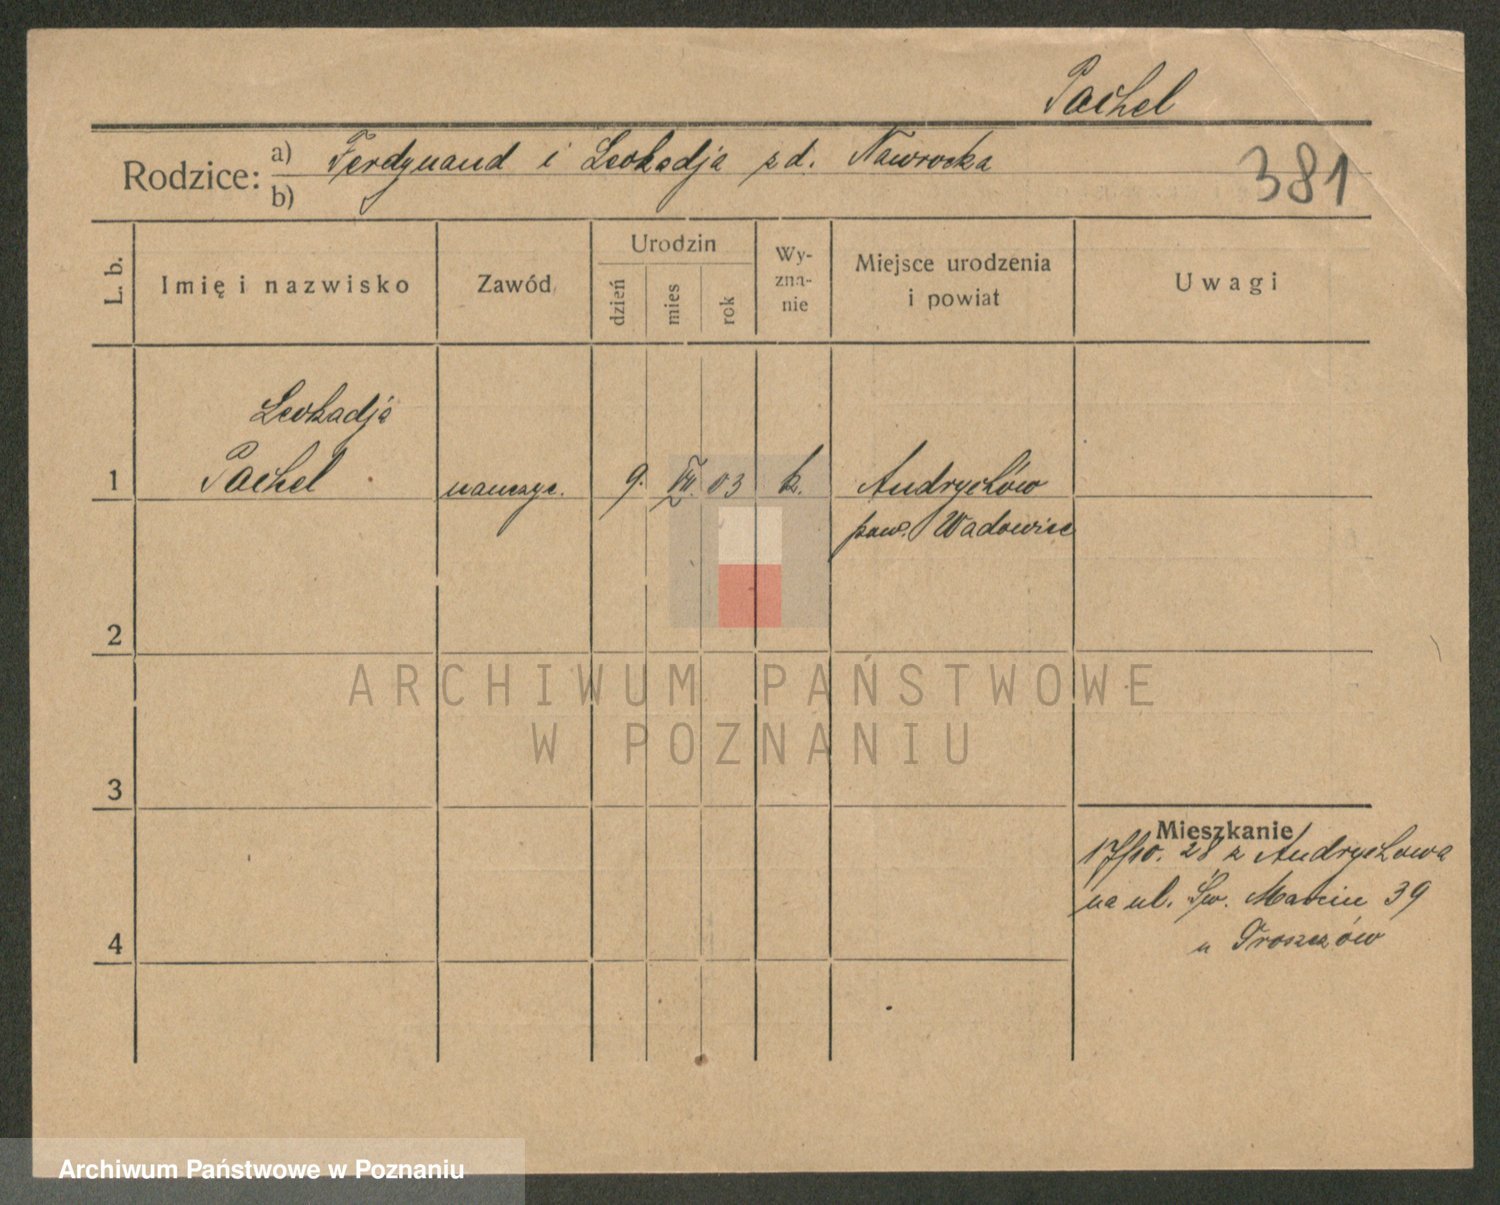 Pachel
Rodzice: a) Ferdynand i Leokadja z d. Nawrocka
b)
381
L. b.
Imię i nazwisko
Zawód
Urodzin
dzień
mies
rok
Wy-
zna-
nie
Miejsce urodzenia
i powiat
Uwagi
Leokadja
1 Pachel nauczyc. 9. VII. 03 k. Andrychów
pow. Wadowice
2
ARCHIWUM PAŃSTWOWE
W POZNANIU
3
Mieszkanie
17/10. 28 z Andrychowa
na ul. Św. Marcin 39
u
4
Archiwum Państwowe w Poznaniu